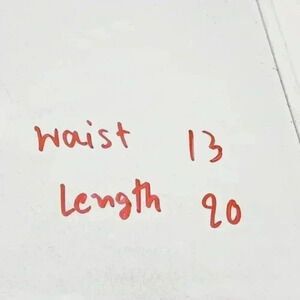 Waist 13
Length 20